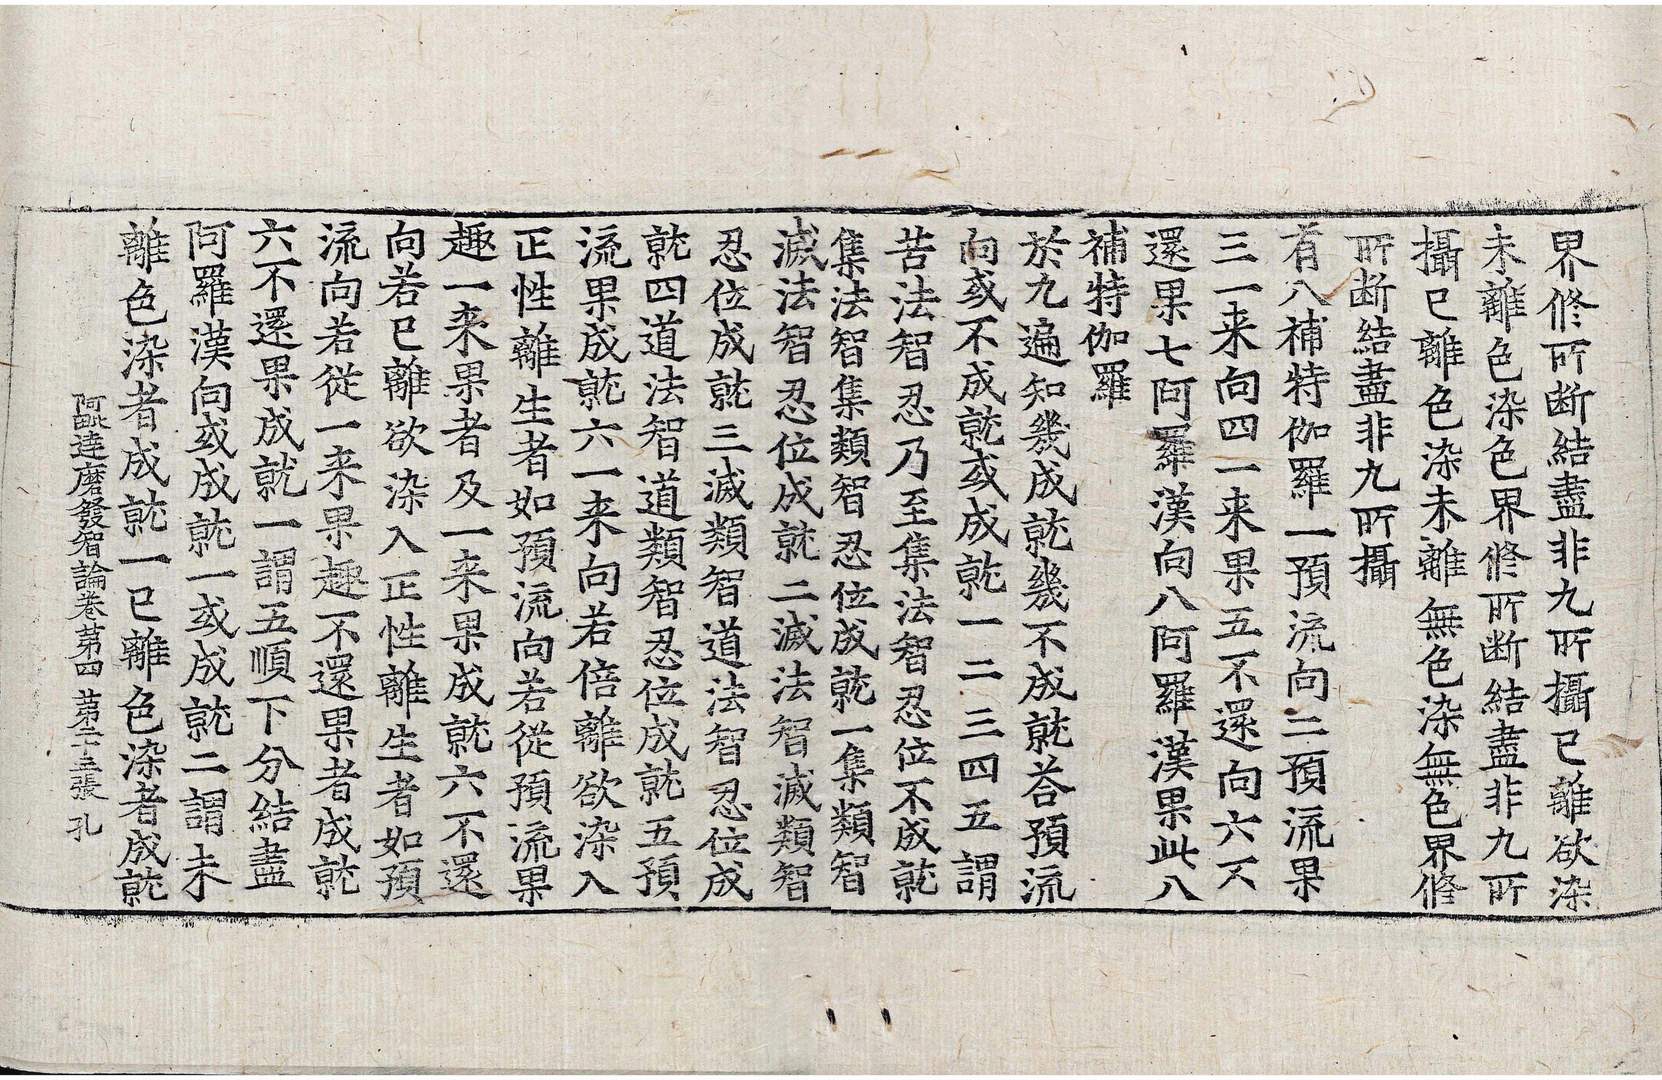 界修所断結盡非九所攝已離欲染
未離色染色界修所断結盡非九所
攝已離色染未離無色染無色界修
所断結盡非九所攝
有八補特伽羅一預流向二預流果
三一来向四一来果五不還向六不
還果七阿羅漢向八阿羅漢果此八
補特伽羅
於九遍知幾成就幾不成就荅預流
向或不成就或成就一二三四五謂
苦法智忍乃至集法智忍位不成就
集法智集類智忍位成就一集類智
滅法智忍位成就二滅法智滅類智
忍位成就三滅類智道法智忍位成
就四道法智道類智忍位成就五預
流果成就六一来向若倍離欲染入
正性離生者如預流向若從預流果
趣一来果者及一来果成就六不還
向若已離欲染入正性離生者如預
流向若從一来果趣不還果者成就
六不還果成就一謂五順下分結盡
阿羅漢向或成就一或成就二謂未
離色染者成就一已離色染者成就
阿毗達磨發智論卷第四 第二十五張 孔